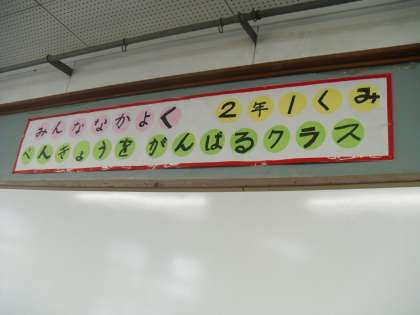 みんななかよく 2年1くみ
べんきょうをがんばるクラス